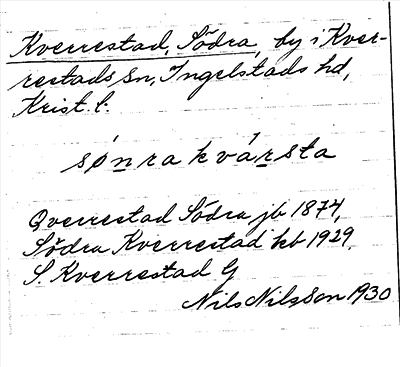 Kverrestad, Södra, by i Kver-
restads sn, Ingelstads hd,
Krist. l.
sǿn̲ra kvár̲sta
Qverrestad Södra jb 1874,
Södra Kverrestad kb 1929,
S. Kverrestad G
Nils Nilsson 1930